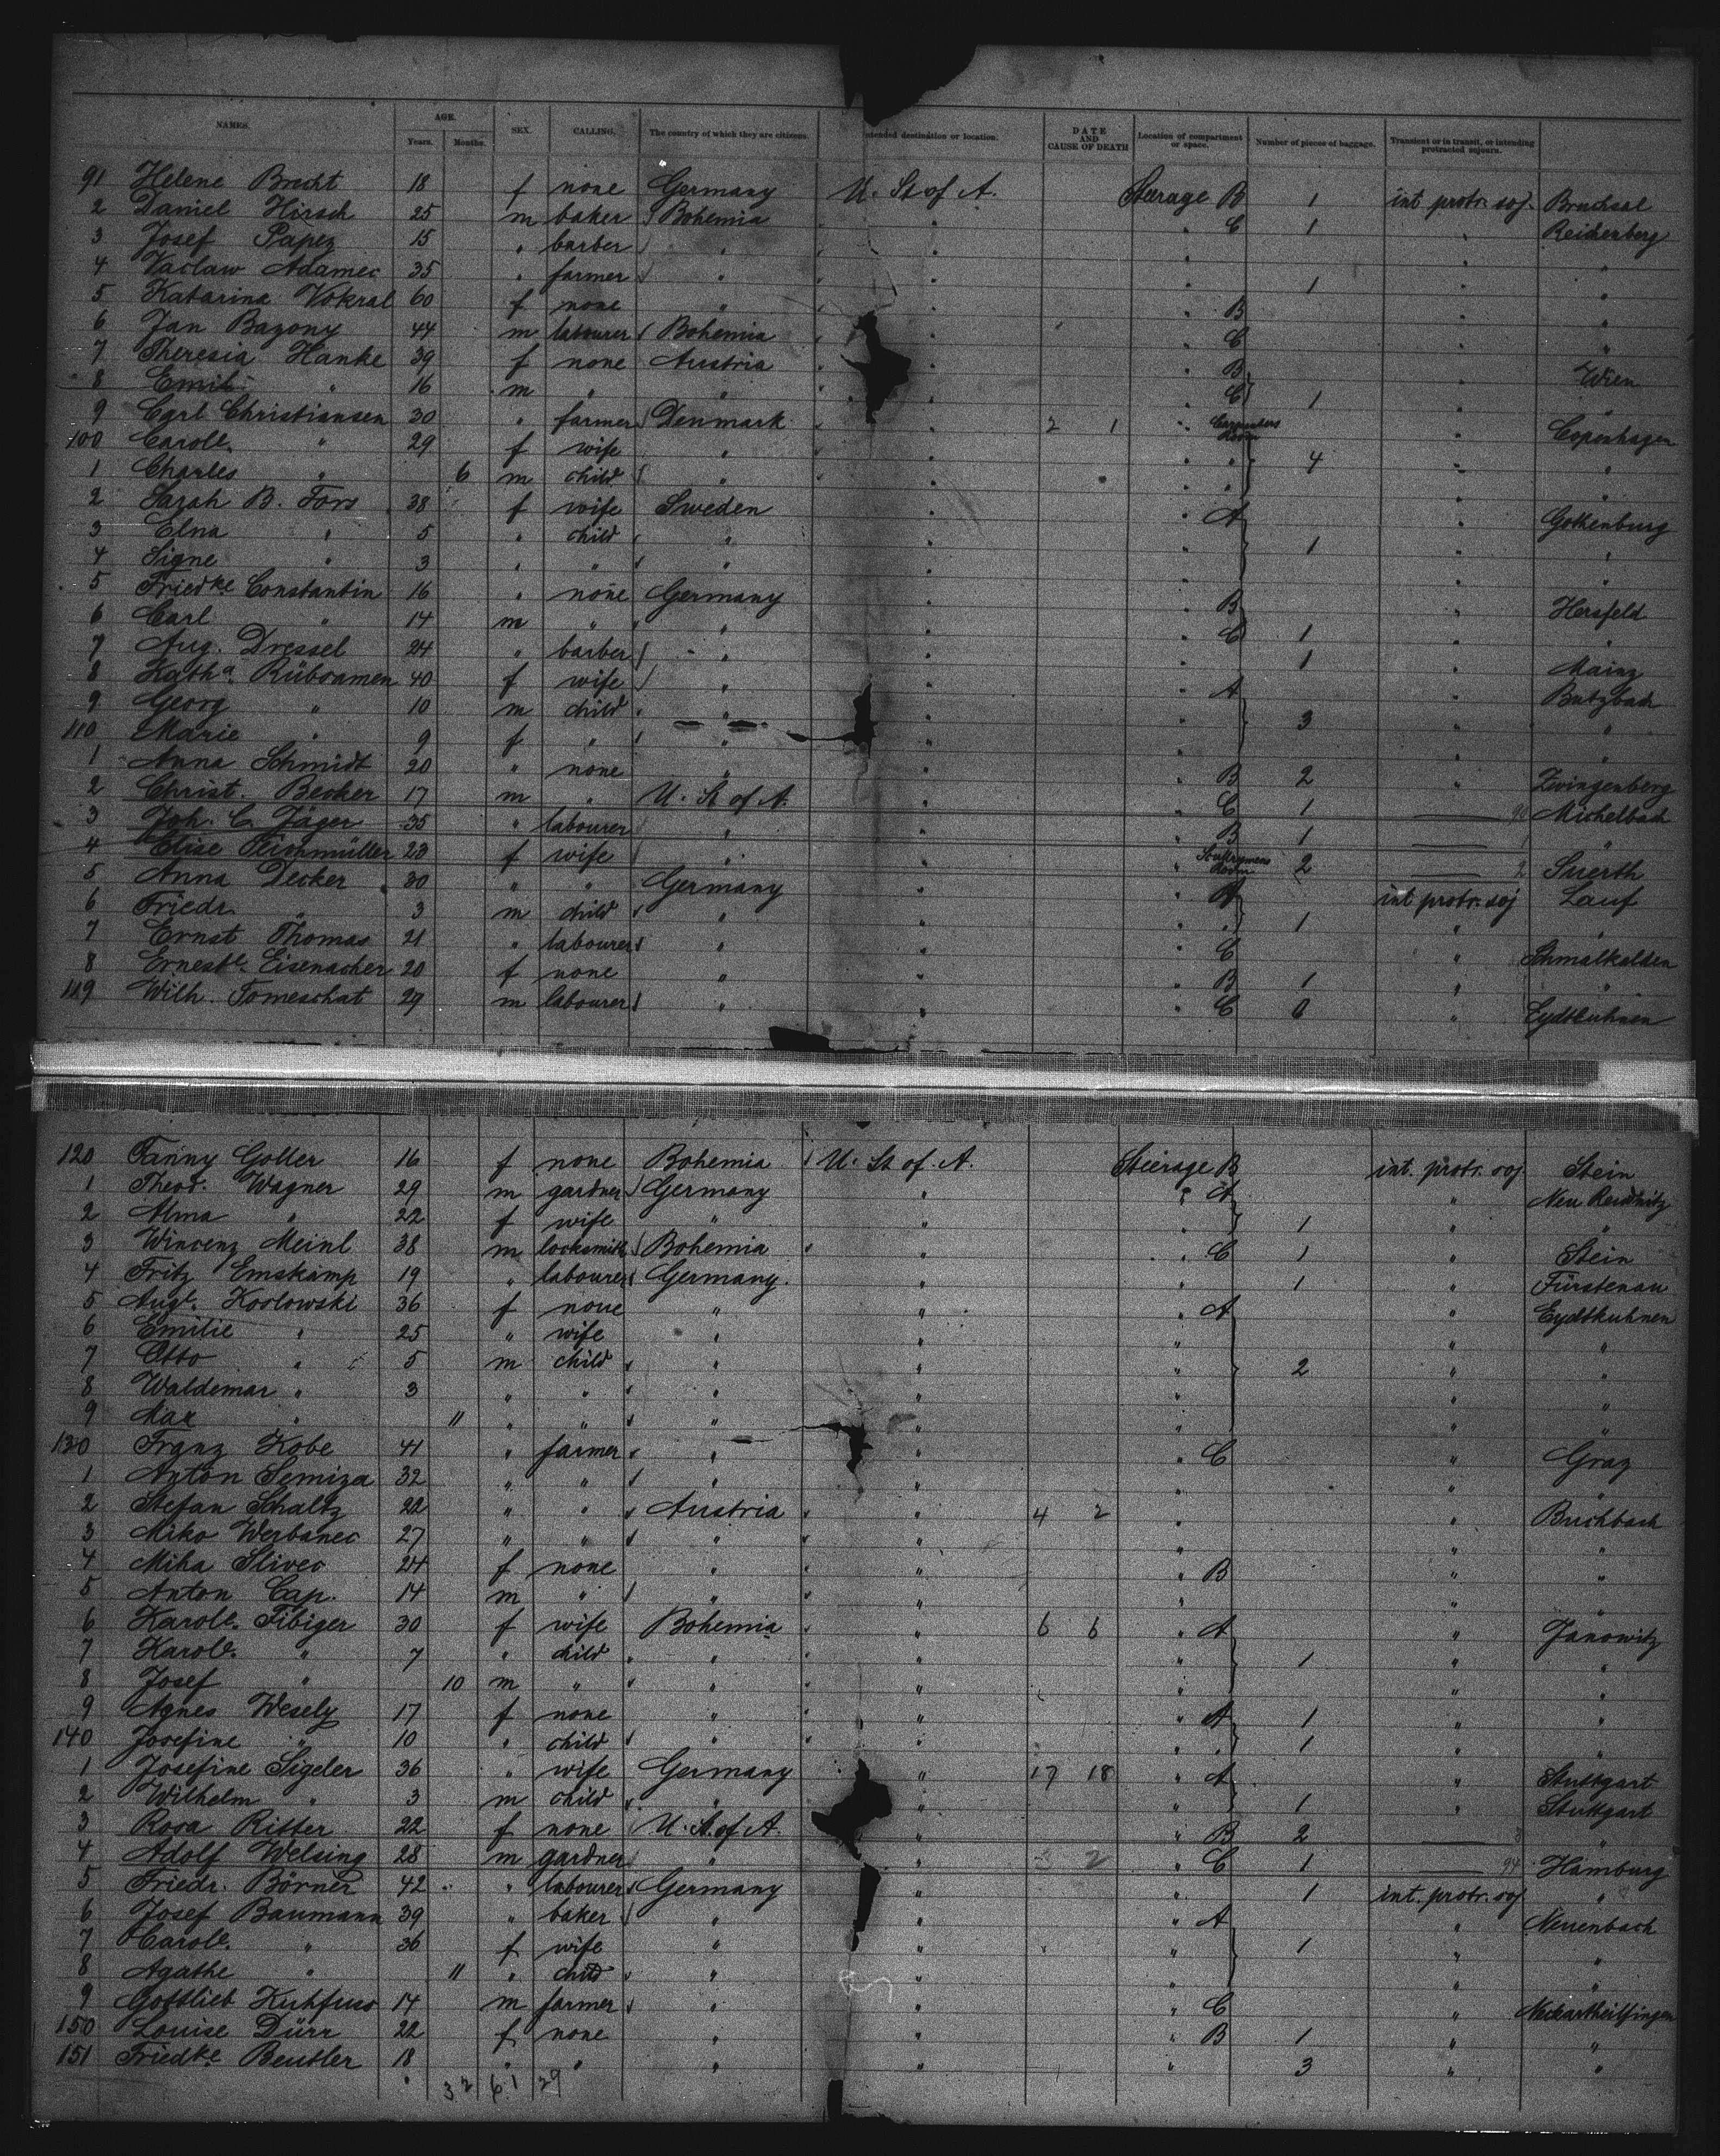 NAMES. AGE. Years. Months. SEX. CALLING. The country of which they are citizens. Intended destination or location. DATE AND CAUSE OF DEATH Location of compartment or space. Number of pieces of baggage. Transient or in transit, or intending protracted sojourn.
91 Helene Brecht 18 f none Germany U. St of A. Steerage B 1 int protr. soj. Bruchsal
2 Daniel Hirsch 25 m baker Bohemia " " C 1 " Reichenberg
3 Josef Papez 15 " barber " " " " "
4 Vaclaw Adamec 35 " farmer " " " 1 " "
5 Katarina Vokral 60 f none " " " B " "
6 Jan Bazony 44 m labourer Bohemia " " C " "
7 Theresia Hanke 39 f none Austria " " B " Wien
8 Emil " 16 m " " " " C 1 " "
9 Carl Christiansen 30 " farmer Denmark " 2 1 " Carpenters Room " Copenhagen
100 Carole. " 29 f wife " " " " 4 " "
1 Charles " 6 m child " " " " "
2 Sarah B. Fors 38 f wife Sweden " " A " Gothenburg
3 Elna " 5 " child " " " 1 " "
4 Signe " 3 " " " " " "
5 Friedke Constantin 16 " none Germany " " B " Hersfeld
6 Carl " 14 m " " " " C 1 " "
7 Aug. Dressel 24 " barber " " 1 " Mainz
8 Katha. Rübsamen 40 f wife " " " A " Butzbach
9 Georg " 10 m child " " " 3 " "
110 Marie " 9 f " " " " " "
1 Anna Schmidt 20 " none " " " B 2 " Zwingenberg
2 Christ. Becker 17 m " U. St of A. " " C 1 Michelbach
3 Joh. C. Jäger 35 " labourer " " " B 1 "
4 Elise Teichmüller 23 f wife " " " Room 2 2 Suerth
5 Anna Decker 30 " " Germany " " A int protr. soj Lauf
6 Friedr. " 3 m child " " " " 1 " "
7 Ernst Thomas 21 " labourer " " " C " Schmalkalden
8 Erneste. Eisenacher 20 f none " " " B 1 " "
119 Wilh. Tomeschat 29 m labourer " " " C 0 " Eydtkuhnen
120 Fanny Goller 16 f none Bohemia U. St of. A. Steerage B int. protr. soj. Stein
1 Theod. Wagner 29 m gardner Germany " " A " Neu Reudnitz
2 Alma " 22 f wife " " " 1 " "
3 Wincenz Meinl 38 m locksmith Bohemia " " C 1 " Stein
4 Fritz Emskamp 19 " labourer Germany. " " 1 " Fürstenau
5 Augte. Koslowski 36 f none " " " A " Eydtkuhnen
6 Emilie " 25 " wife " " " " "
7 Otto " 5 m child " " " 2 " "
8 Waldemar " 3 " " " " " " "
9 Max " 11 " " " " " " "
130 Franz Kobe 41 " farmer " " " C " Graz
1 Anton Semiza 32 " " " " " " "
2 Stefan Schaltz 22 " " Austria " 4 2 " " Buchbach
3 Miko Werbanec 27 " " " " " " "
4 Miha Slivec 24 f none " " " B " "
5 Anton Cap. 14 m " " " " " "
6 Karole. Fibiger 30 f wife Bohemia " 6 6 " A " Janowitz
7 Karole. " 7 " child " " " 1 " "
8 Josef " 10 m " " " " " "
9 Agnes Wesely 17 f none " " " A 1 " "
140 Josefine " 10 " child " " " " 1 " "
1 Josefine Sigeler 36 " wife Germany " 17 18 " A " Stuttgart
2 Wilhelm " 3 m child " " " 1 " Stuttgart
3 Rosa Ritter 22 f none U. St. of A. " " B 2 3 "
4 Adolf Welsing 28 m gardner " " 2 " C 1 94 Hamburg
5 Friedr. Börner 42 " labourer Germany " " 1 int. protr. soj. "
6 Josef Baumann 39 " baker " " " A " Neuenbach
7 Carole. " 36 f wife " " " 1 " "
8 Agathe " 11 " child " " " " "
9 Gottlieb Kuhfuss 14 m farmer " " " C " Neckartheilfingen
150 Louise Dürr 22 f none " " " B 1 " "
151 Friedke Beutler 18 " " " " " 3 " "
32 61 29